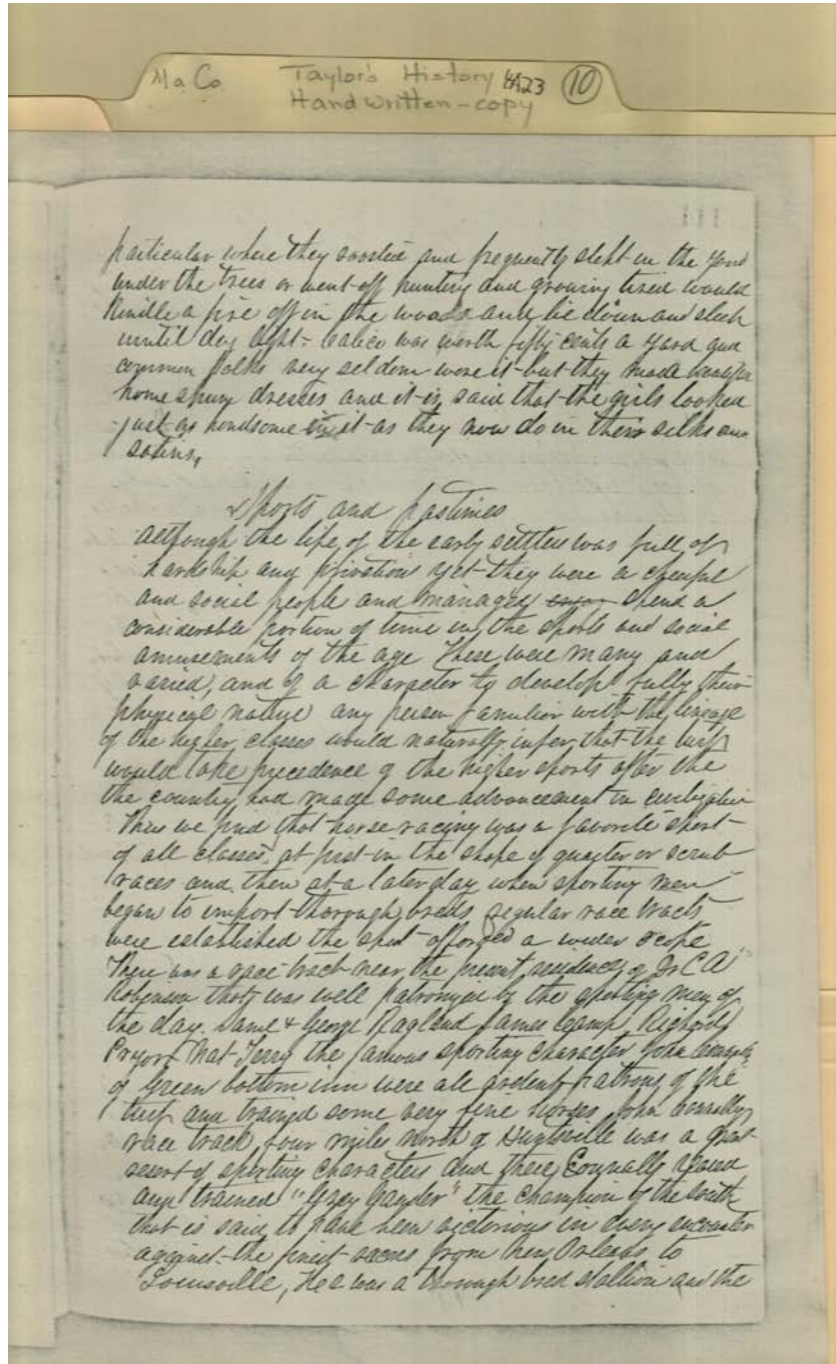 Ma Co. Taylor's History 4A23 10
Handwritten - copy
111
particular where they and frequently slept in the yard
under the trees or went off hunting and growing tired would
kindle a fire off in the woods and lie down and sleep
until day light - calico was worth fifty cents a yard and
common folks very seldom wore it but they made beautiful
home spun dresses and it is said that the girls looked
just as handsome in it as they now do in their silks and
satins,
Sports and pastimes
although the life of the early settlers was full of
hardship and privations yet they were a cheerful
and social people and managed spend a
considerable portion of time in the sports and social
amusements of the age These were many and
varied, and of a character to develop fully their
physical natures any person familiar with the lineage
of the higher classes would naturally infer that the turf
would take precedence of the higher sports after the
the country had made some advancement in civilization
Thus we find that horse racing was a favorite sport
of all classes, at first in the shape of quarter or scrub
races and then at a later day when sporting men
began to import thorough breds regular race tracts
were established the afforded a wider scope
There was a race track near the present residence of Dr C A
Robinson that was well patronized by the sporting men of
the day. & George Ragland James Camp, Richard
Pryor Nat Terry the famous sporting character John Connally
of Green bottom inn were all ardent patrons of the
turf and trained some very fine horses John Connally
race track four miles north of Huntsville was a great
resort of sporting characters and there Connally
and trained "Grey Gander" the champion of the South
that is said to have been victorious in every encounter
against the finest racers from New Orleans to
Louisville, He was a thorough bred stallion and the